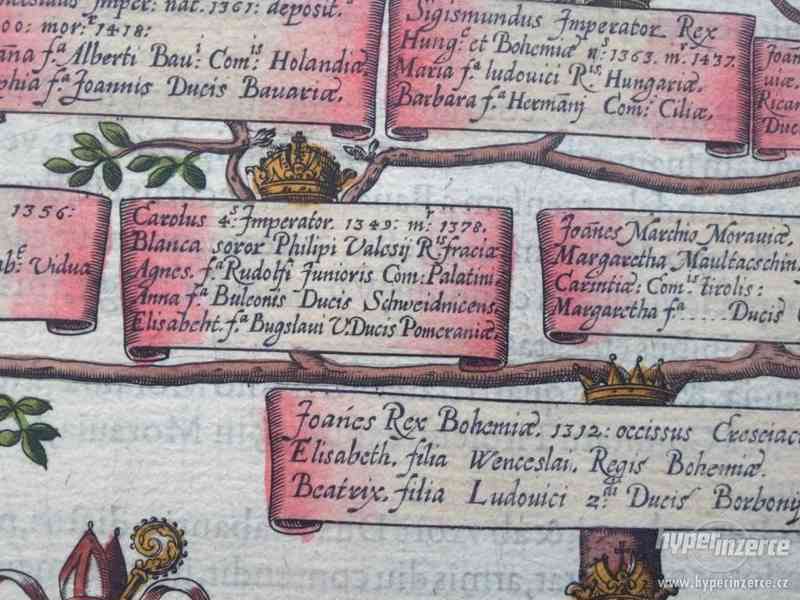 Imper: nat. 1361: deposit.
mor: 1418:
f.ª Alberti Bau: Com: Holandiæ
f.ª Joannis Ducis Bavariæ.
Sigismundus Imperator Rex
Hung: et Bohemiæ n: 1363. m: 1437.
Maria f.ª ludovici R.is Hungariæ.
Barbara f.ª Hermãnj Com: Ciliæ.
1356:
Vidua
Carolus 4.s Imperator. 1349: m.r 1378.
Blanca soror Philipi Valesij R.is fraciæ
Agnes. f.ª Rudolfi Junioris Com: Palatini
Anna f.ª Bulconis Ducis Schweidnicens.
Elisabeht. f.ª Bugslaui V. Ducis Pomeraniæ.
Joães Marchio Moraviæ.
Margaretha Maultacschin
Carintiæ: Com.is Tirolis:
Margaretha f.ª ..... Ducis
Joanes Rex Bohemiæ. 1312: occissus Cresciac
Elisabeth. filia Wenceslai. Regis Bohemiæ.
Beatrix. filia Ludouici 2.di Ducis Borbony
hyperinzerce
www.hyperinzerce.cz